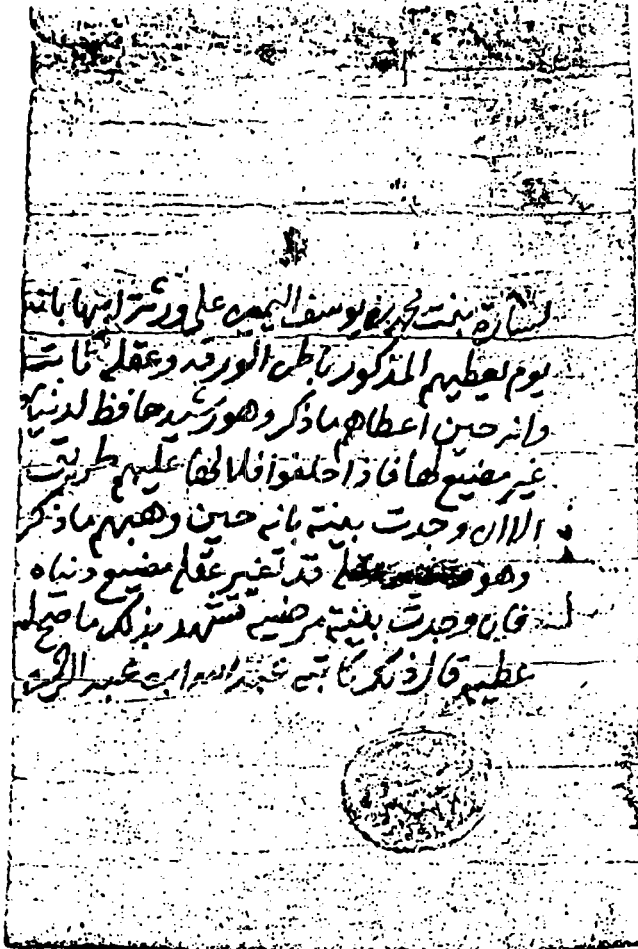 لسارة بنت محمد بن يوسف على ورثة ابنها بانه
يوم يعطيهم المذكور باطن الورقه وعقله ثابت
وانه حين اعطاهم ماذكر وهو رشيد حافظ لدنياه
غير مضيع لها فاذا حلفوا فلا لها عليهم طريقة
الا ان وجدت بينة بانه حين وهبهم ماذكر
وهو قد تغير عقله مضيع دنياه
فان وجدت بينة مرضية تشهد بذلك ماصح له
عطيه قال ذلك كاتبه عبد الله ابن عبد